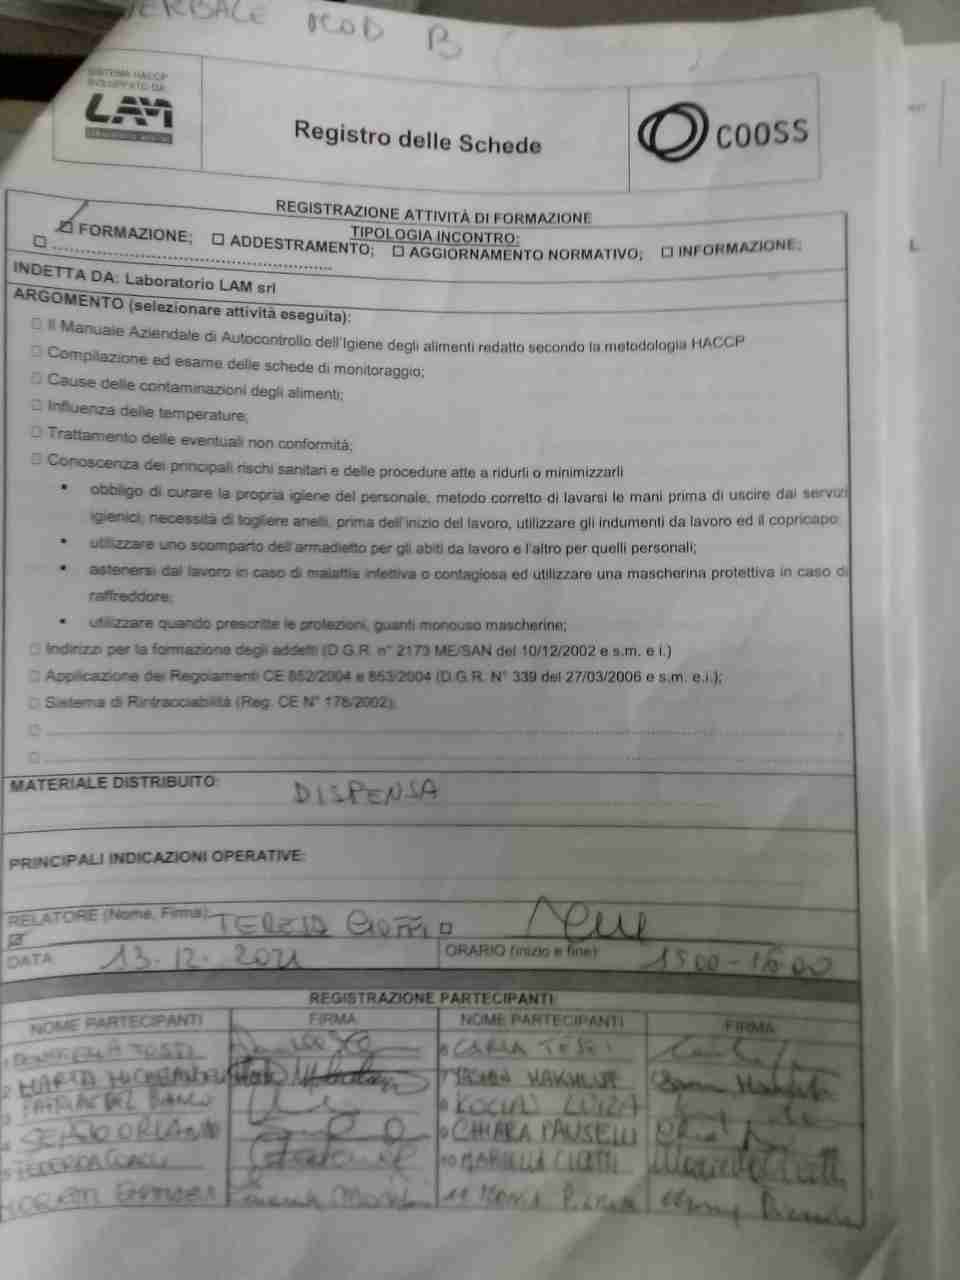 VERBALE MOD B
SISTEMA HACCP
SVILUPPATO DA
LAM
Registro delle Schede
COOSS
REGISTRAZIONE ATTIVITÀ DI FORMAZIONE
TIPOLOGIA INCONTRO:
☑ FORMAZIONE; ☐ ADDESTRAMENTO; ☐ AGGIORNAMENTO NORMATIVO; ☐ INFORMAZIONE;
☐ ................................................
INDETTA DA: Laboratorio LAM srl
ARGOMENTO (selezionare attività eseguita):
☐ Il Manuale Aziendale di Autocontrollo dell'Igiene degli alimenti redatto secondo la metodologia HACCP
☐ Compilazione ed esame delle schede di monitoraggio;
☐ Cause delle contaminazioni degli alimenti;
☐ Influenza delle temperature;
☐ Trattamento delle eventuali non conformità;
☐ Conoscenza dei principali rischi sanitari e delle procedure atte a ridurli o minimizzarli
• obbligo di curare la propria igiene del personale, metodo corretto di lavarsi le mani prima di uscire dai servizi
igienici, necessità di togliere anelli, prima dell'inizio del lavoro, utilizzare gli indumenti da lavoro ed il copricapo;
• utilizzare uno scomparto dell'armadietto per gli abiti da lavoro e l'altro per quelli personali;
• astenersi dal lavoro in caso di malattia infettiva o contagiosa ed utilizzare una mascherina protettiva in caso di
raffreddore;
• utilizzare quando prescritte le protezioni, guanti monouso mascherine;
☐ Indirizzi per la formazione degli addetti (D.G.R. n° 2173 ME/SAN del 10/12/2002 e s.m. e i.)
☐ Applicazione dei Regolamenti CE 852/2004 e 853/2004 (D.G.R. N° 339 del 27/03/2006 e s.m. e.i.);
☐ Sistema di Rintracciabilità (Reg. CE N° 178/2002);
MATERIALE DISTRIBUITO: DISPENSA
PRINCIPALI INDICAZIONI OPERATIVE:
RELATORE (Nome, Firma): TERESA CIOFFI
DATA 13.12.2021 ORARIO (inizio e fine) 15.00-16.00
REGISTRAZIONE PARTECIPANTI
NOME PARTECIPANTI FIRMA NOME PARTECIPANTI FIRMA
TOSTI CARLA
MARTA
KOCIAN LUIZA
SERGIO ORLANDO CHIARA PAUSELLI
10 MARIELLA CIOTTI
11